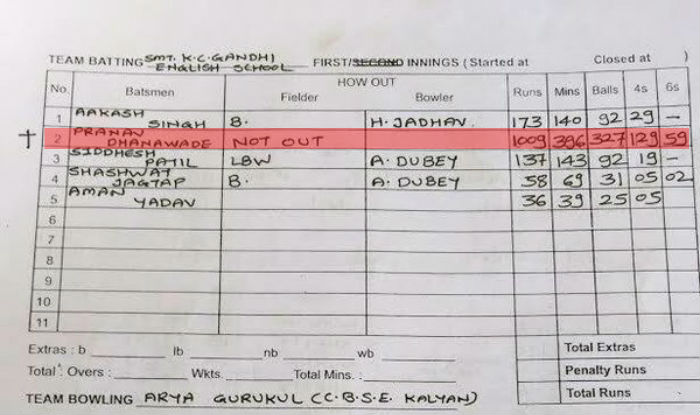 TEAM BATTING SMT. K.C. GANDHI ENGLISH SCHOOL FIRST/SECOND INNINGS (Started at Closed at )
No. Batsmen HOW OUT Fielder Bowler Runs Mins Balls 4s 6s
1 AAKASH SINGH B. H. JADHAV. 173 140 92 29 –
2 PRANAV DHANAWADE NOT OUT 1009 396 327 129 59
3 SIDDHESH PATIL LBW A. DUBEY 137 143 92 19 –
4 SHASHWAT JAGTAP B. A. DUBEY 58 69 31 05 02
5 AMAN YADAV 36 39 25 05
6
7
8
9
10
11
Extras : b lb nb wb Total Extras
Total : Overs : Wkts. Total Mins. : Penalty Runs
Total Runs
TEAM BOWLING ARYA GURUKUL (C.B.S.E. KALYAN)